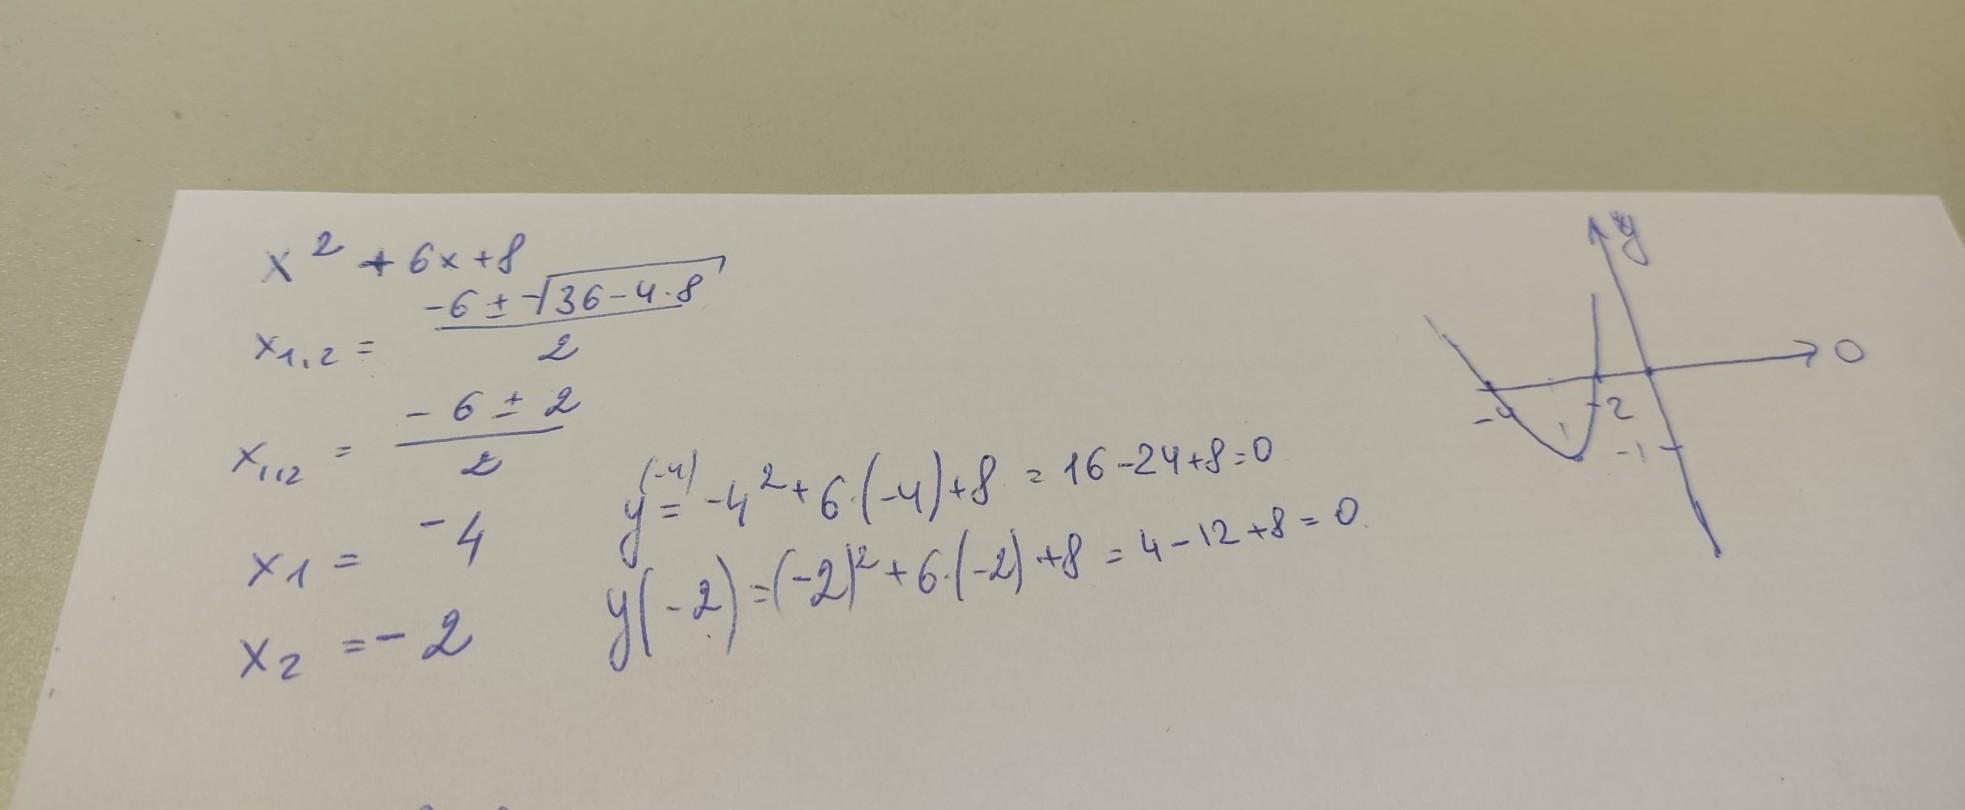 x² + 6x + 8
x₁,₂ = (-6 ± √(36 - 4·8)) / 2
x₁,₂ = (-6 ± 2) / 2
x₁ = -4
x₂ = -2
y(-4) = -4² + 6·(-4) + 8 = 16 - 24 + 8 = 0
y(-2) = (-2)² + 6·(-2) + 8 = 4 - 12 + 8 = 0
y
0
-4
-2
-1